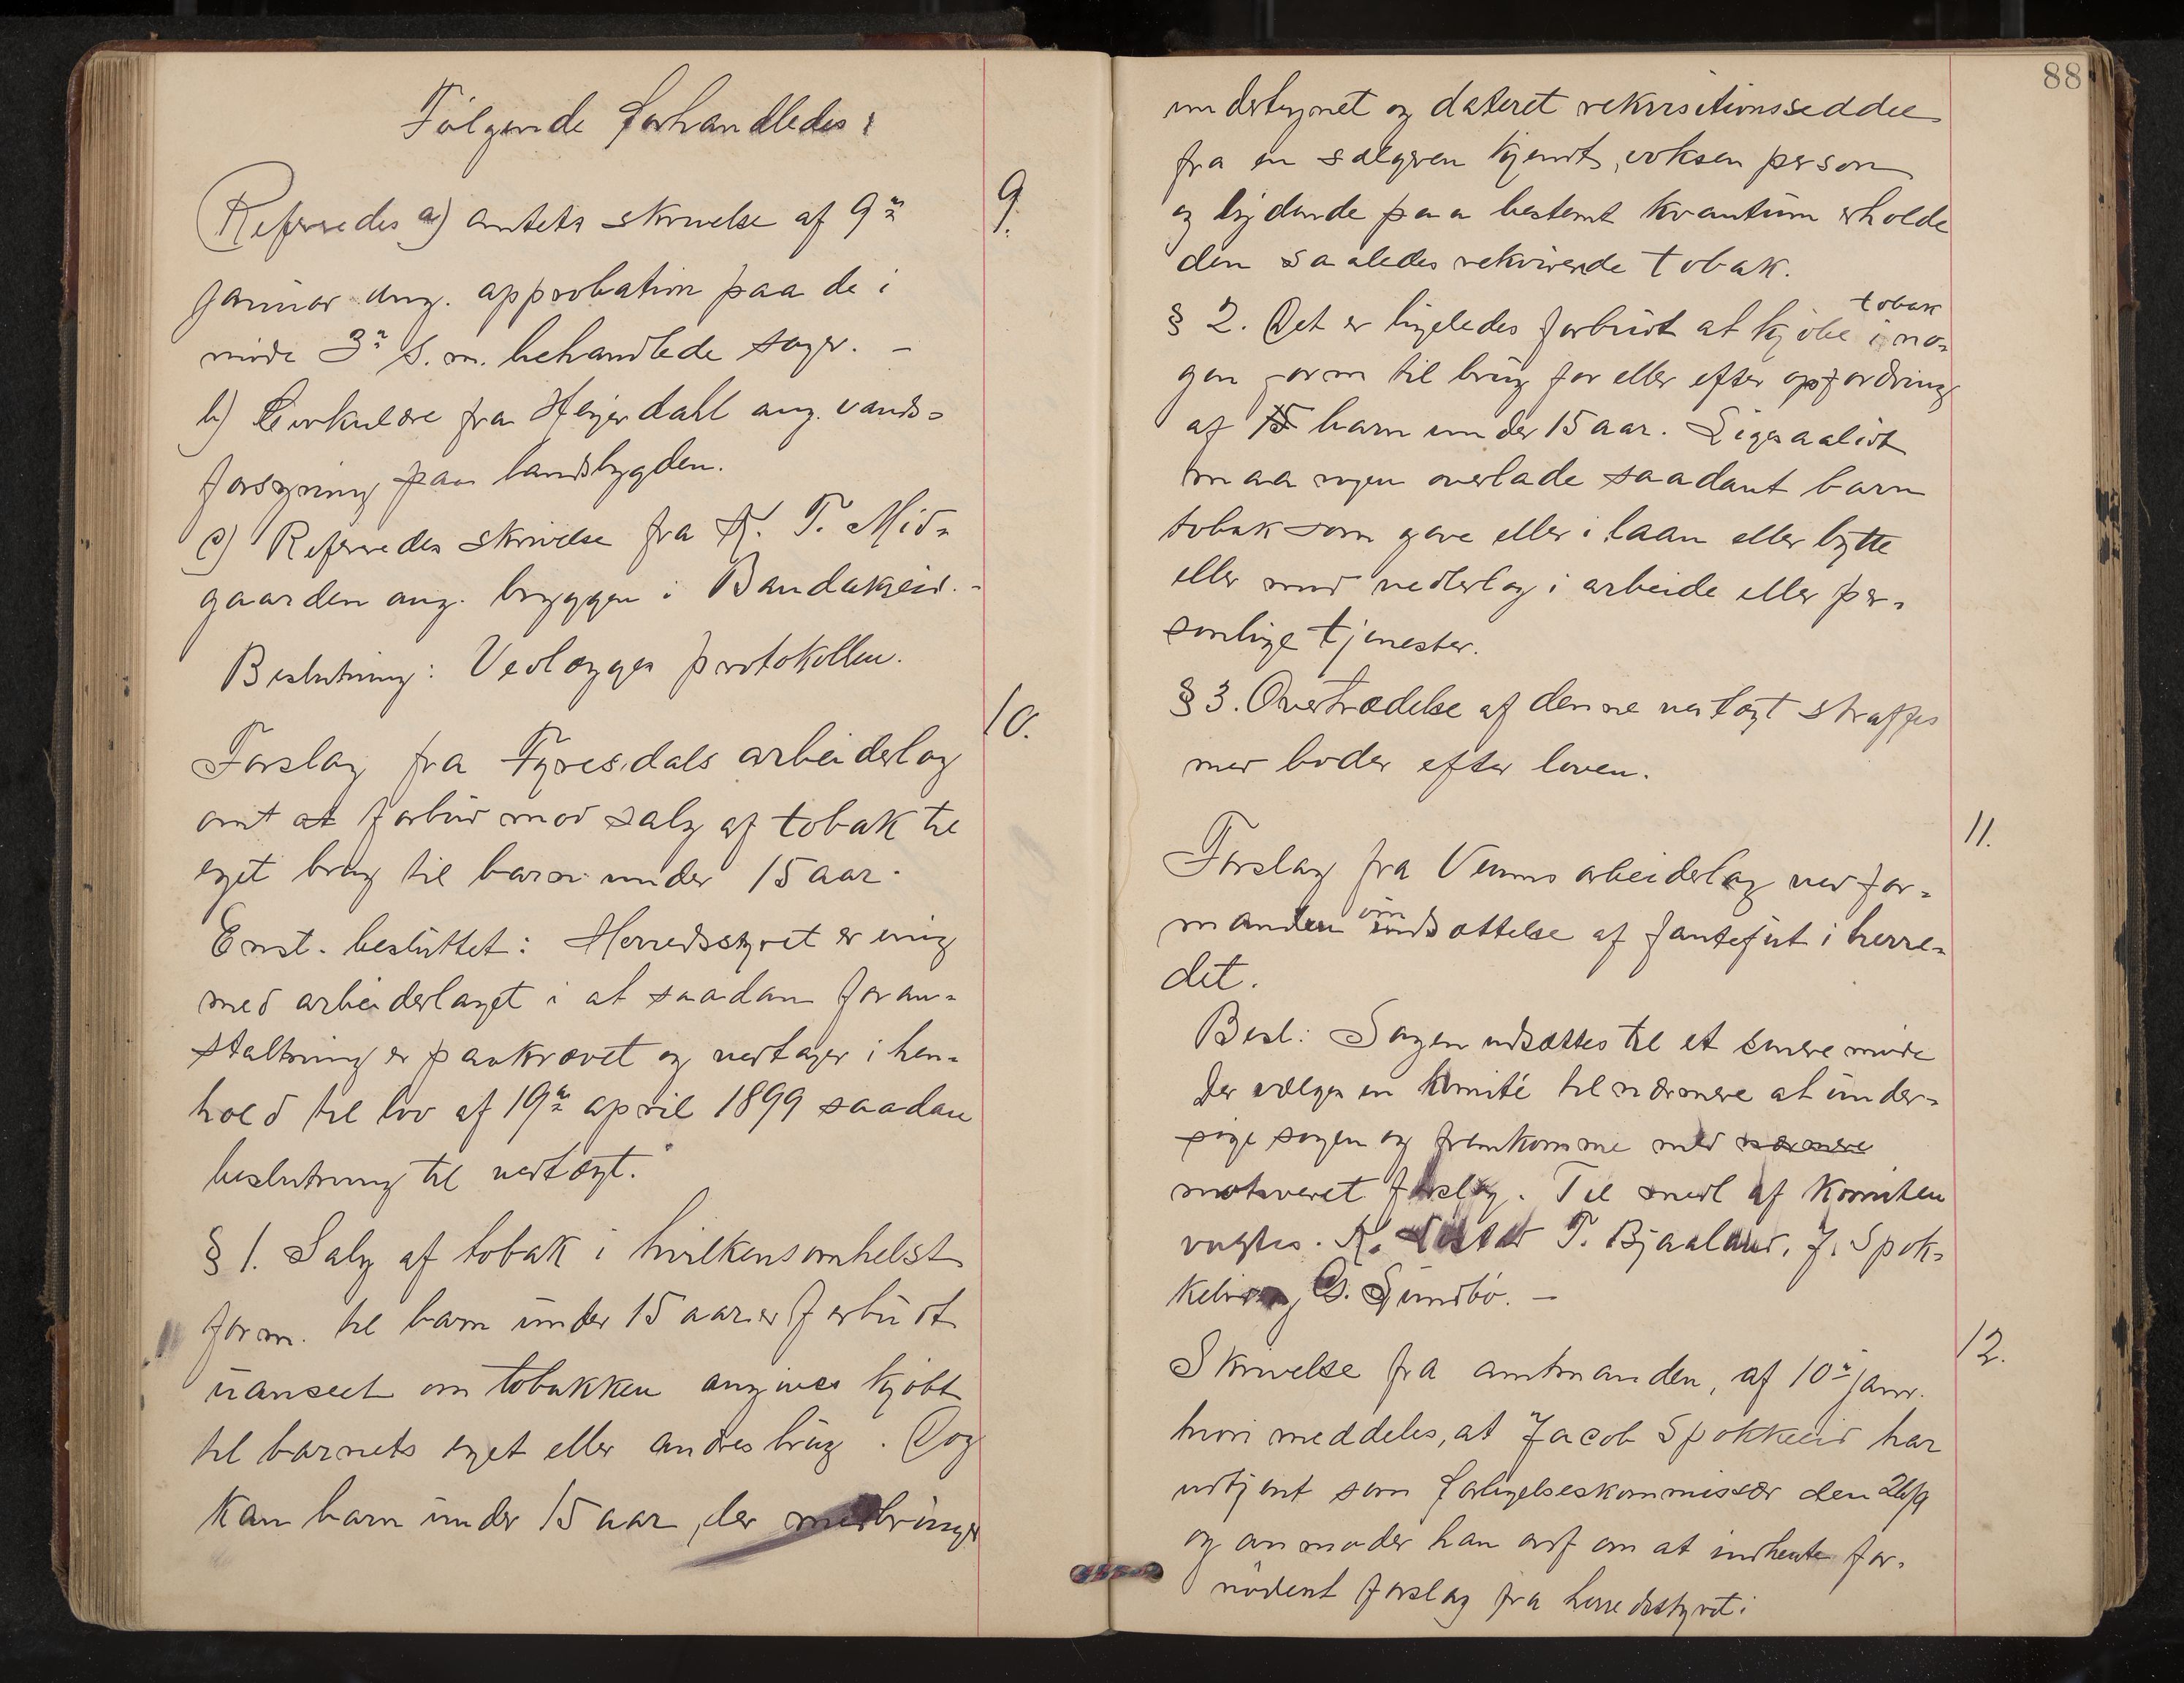 Følgende forhandledes:
9.
Refereredes a) amtets skrivelse af 9de
januar ang. approbation paa de i
møde 3de s. m. behandlede sager. –
b) Cirkulære fra Heyerdahl ang. vands=
forsyning paa landsbygden.
c) Refereredes skrivelse fra K. T. Mid=
gaarden ang. bryggen i Bandakseid. –
Beslutning: Vedlægges protokollen.
10.
Forslag fra Fyresdals arbeiderlag
om et forbud mod salg af tobak til
eget brug til barn under 15 aar.
Enst. besluttet: Herredsstyret er enig
med arbeiderlaget i at saadan foran=
staltning er paakrævet og vedtager i hen=
hold til lov af 19de april 1899 saadan
beslutning til vedtægt.
§ 1. Salg af tobak i hvilkensomhelst
form. til barn under 15 aar er forbudt
uanseet om tobakken angives kjøbt
til barnets eget eller andres brug. Dog
kan barn under 15 aar, der medbringer
88
undertegnet og dateret rekvisitionsseddel
fra en sælgeren kjendt, voksen person
og lydende paa bestemt kvantum erholde
den saaledes rekvirerede tobak.
§ 2. Det er ligeledes forbudt at kjøbe tobak i no=
gen form til brug for eller efter opfordring
af barn under 15 aar. Ligesaalidt
maa nogen overlade saadant barn
tobak som gave eller i laan eller bytte
eller mod vederlag i arbeide eller per=
sonlige tjenester.
§ 3. Overtrædelse af denne vedtægt straffes
med bøder efter loven.
11.
Forslag fra Veums arbeiderlag ved for=
manden om indsættelse af fantefut i herre=
det.
Besl: Sagen udsættes til et senere møde
Der vælges en komité til nærmere at under=
søge sagen og fremkomme med nærmere
motiveret forslag. Til medl af komiteen
valgtes. K. T. Bjaaland, J. Spok=
kelid og G. Sundbø. –
12.
Skrivelse fra amtmanden, af 10de janr.
hvori meddeles, at Jacob Spokkelid har
udtjent som forligelseskommissær den 26/9
og anmoder han ordf om at indhente for=
nødent forslag fra herredsstyret: